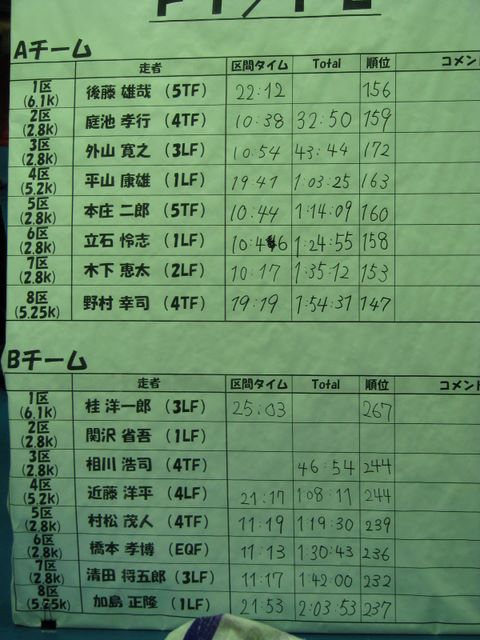 Aチーム
走者 区間タイム Total 順位 コメン
1区 (6.1k) 後藤 雄哉 (5TF) 22:12 156
2区 (2.8k) 庭池 孝行 (4TF) 10:38 32:50 159
3区 (2.8k) 外山 寛之 (3LF) 10:54 43:44 172
4区 (5.2k) 平山 康雄 (1LF) 19:41 1:03:25 163
5区 (2.8k) 本庄 二郎 (5TF) 10:44 1:14:09 160
6区 (2.8k) 立石 怜志 (1LF) 10:46 1:24:55 158
7区 (2.8k) 木下 恵太 (2LF) 10:17 1:35:12 153
8区 (5.25k) 野村 幸司 (4TF) 19:19 1:54:31 147
Bチーム
走者 区間タイム Total 順位 コメン
1区 (6.1k) 桂 洋一郎 (3LF) 25:03 267
2区 (2.8k) 関沢 省吾 (1LF)
3区 (2.8k) 相川 浩司 (4TF) 46:54 244
4区 (5.2k) 近藤 洋平 (4LF) 21:17 1:08:11 244
5区 (2.8k) 村松 茂人 (4TF) 11:19 1:19:30 239
6区 (2.8k) 橋本 孝博 (EQF) 11:13 1:30:43 236
7区 (2.8k) 清田 将五郎 (3LF) 11:17 1:42:00 232
8区 (5.25k) 加島 正隆 (1LF) 21:53 2:03:53 237